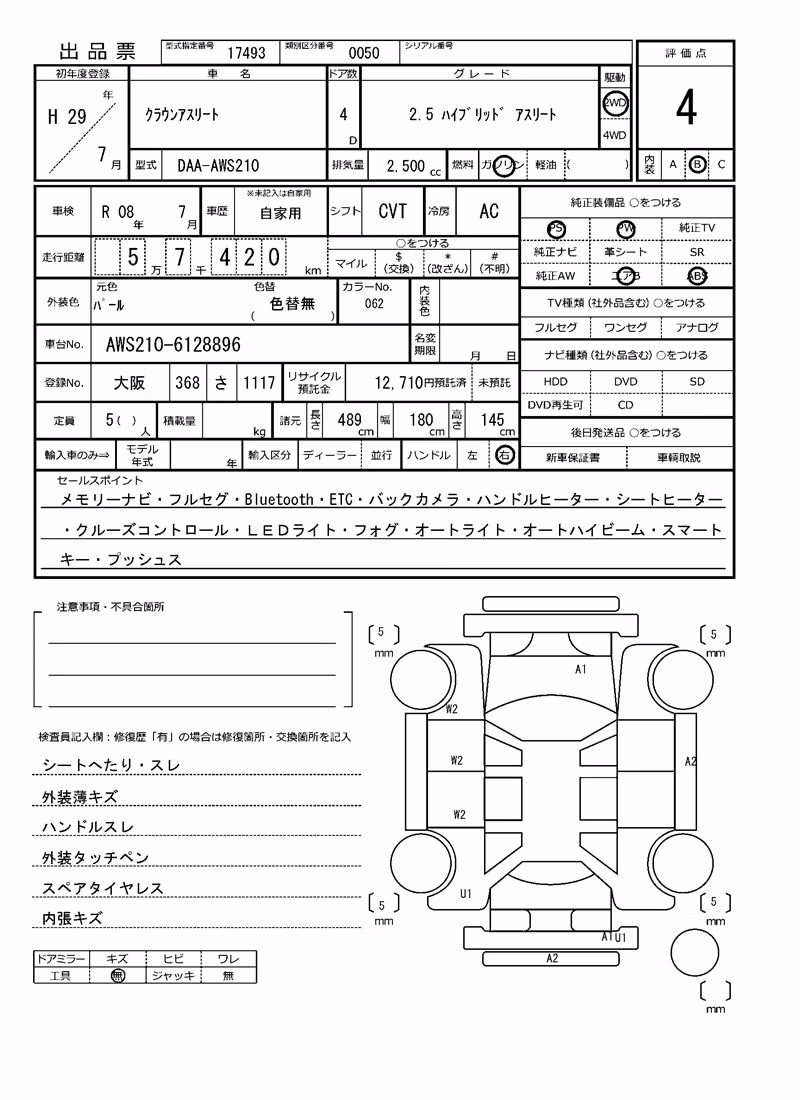 出品票 型式指定番号 17493 類別区分番号 0050 シリアル番号
評価点
4
内装 A B C
初年度登録 車名 ドア数 グレード 駆動
H 29 年 7 月 クラウンアスリート 4 D 2.5 ハイブリッド アスリート 2WD
4WD
型式 DAA-AWS210 排気量 2,500 cc 燃料 ガソリン 軽油 ( )
車検 R 08 年 7 月 車歴 ※未記入は自家用 自家用 シフト CVT 冷房 AC
走行距離 5 万 7 千 4 2 0 km
○をつける
マイル $ (交換) * (改ざん) # (不明)
外装色 元色 パール 色替 ( 色替無 ) カラーNo. 062 内装色
車台No. AWS210-6128896 名変期限 月 日
登録No. 大阪 368 さ 1117 リサイクル預託金 12,710円預託済 未預託
定員 5( ) 人 積載量 kg 諸元 長さ 489 cm 幅 180 cm 高さ 145 cm
輸入車のみ⇒ モデル年式 年 輸入区分 ディーラー 並行 ハンドル 左 右
純正装備品 ○をつける
PS PW 純正TV
純正ナビ 革シート SR
純正AW エアB ABS
TV種類 (社外品含む) ○をつける
フルセグ ワンセグ アナログ
ナビ種類 (社外品含む) ○をつける
HDD DVD SD
DVD再生可 CD
後日発送品 ○をつける
新車保証書 車輌取説
セールスポイント
メモリーナビ・フルセグ・Bluetooth・ETC・バックカメラ・ハンドルヒーター・シートヒーター
・クルーズコントロール・ＬＥＤライト・フォグ・オートライト・オートハイビーム・スマート
キー・プッシュス
注意事項・不具合箇所
検査員記入欄：修復歴「有」の場合は修復箇所・交換箇所を記入
シートへたり・スレ
外装薄キズ
ハンドルスレ
外装タッチペン
スペアタイヤレス
内張キズ
ドアミラー キズ ヒビ ワレ
工具 無 ジャッキ 無
5 mm
5 mm
A1
W2
W2
A2
W2
U1
5 mm
5 mm
A1 U1
A2
mm